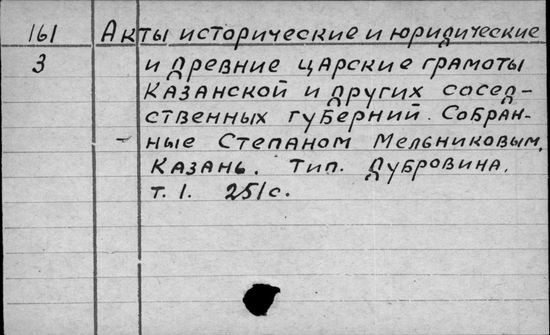 161 Акты исторические и юридические
3 и древние царские грамоты
Казанской и других сосед-
ственных губерний. Собран-
ные Степаном Мельниковым.
Казань. Тип. Дубровина.
т. 1. 251 с.